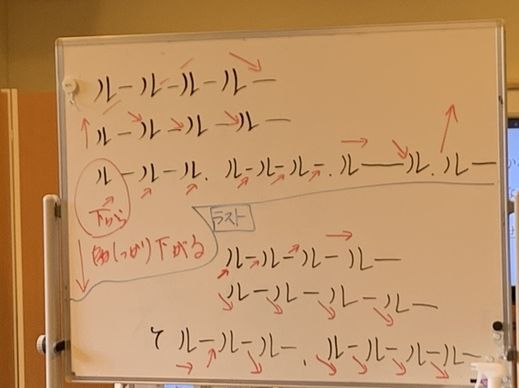 ルー ルー ルー ルー
ルー ルー ルー ルー
ルー ルー ル. ルー ルー ルー. ルー ル. ルー
下から
しっかり下がる
ラスト
ルー ルー ルー ルー
ルー ルー ルー ルー
ルー ルー ルー. ルー ルー ルー ルー